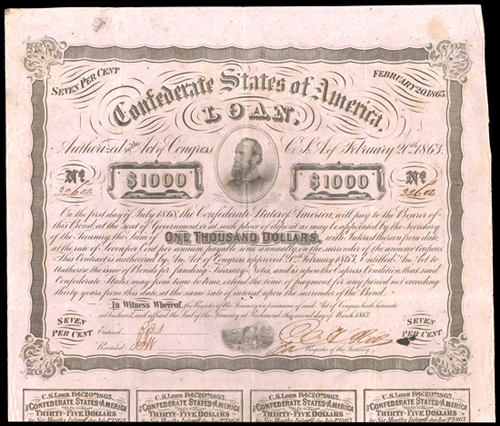 SEVEN PER CENT
FEBRUARY 20, 1863.
Confederate States of America.
LOAN.
Authorized by the Act of Congress C. S. A. of February 20th 1863.
No $1000 $1000 No
On the first day of July 1868, the Confederate States of America, will pay to the Bearer of
this Bond, at the seat of Government, or at such place of deposit as may be appointed by the Secretary
of the Treasury, the Sum of ONE THOUSAND DOLLARS, with Interest thereon from date
at the rate of Seven per Cent per annum, semi-annually, on the surrender of the annexed Coupon.
This Contract is authorized by An Act of Congress approved 20th February 1863, Entitled "An Act to
authorize the issue of Bonds for funding Treasury Notes, and is upon the Express Condition, that said
Confederate States, may from time to time, extend the time of payment for any period not exceeding
thirty years from this date, at the same rate of interest, upon the surrender of this Bond.
In Witness Whereof, the Register of the Treasury, in pursuance of said Act of Congress hath hereunto
set his hand, and affixed the Seal of the Treasury, at Richmond, this second day of March 1863.
SEVEN PER CENT
Entered
Recorded
Register of the Treasury.
SEVEN PER CENT
C.S. Loan Feb. 20th 1863.
The CONFEDERATE STATES of AMERICA
THIRTY-FIVE DOLLARS
C.S. Loan Feb. 20th 1863.
The CONFEDERATE STATES of AMERICA
THIRTY-FIVE DOLLARS
C.S. Loan Feb. 20th 1863.
The CONFEDERATE STATES of AMERICA
THIRTY-FIVE DOLLARS
C.S. Loan Feb. 20th 1863.
The CONFEDERATE STATES of AMERICA
THIRTY-FIVE DOLLARS